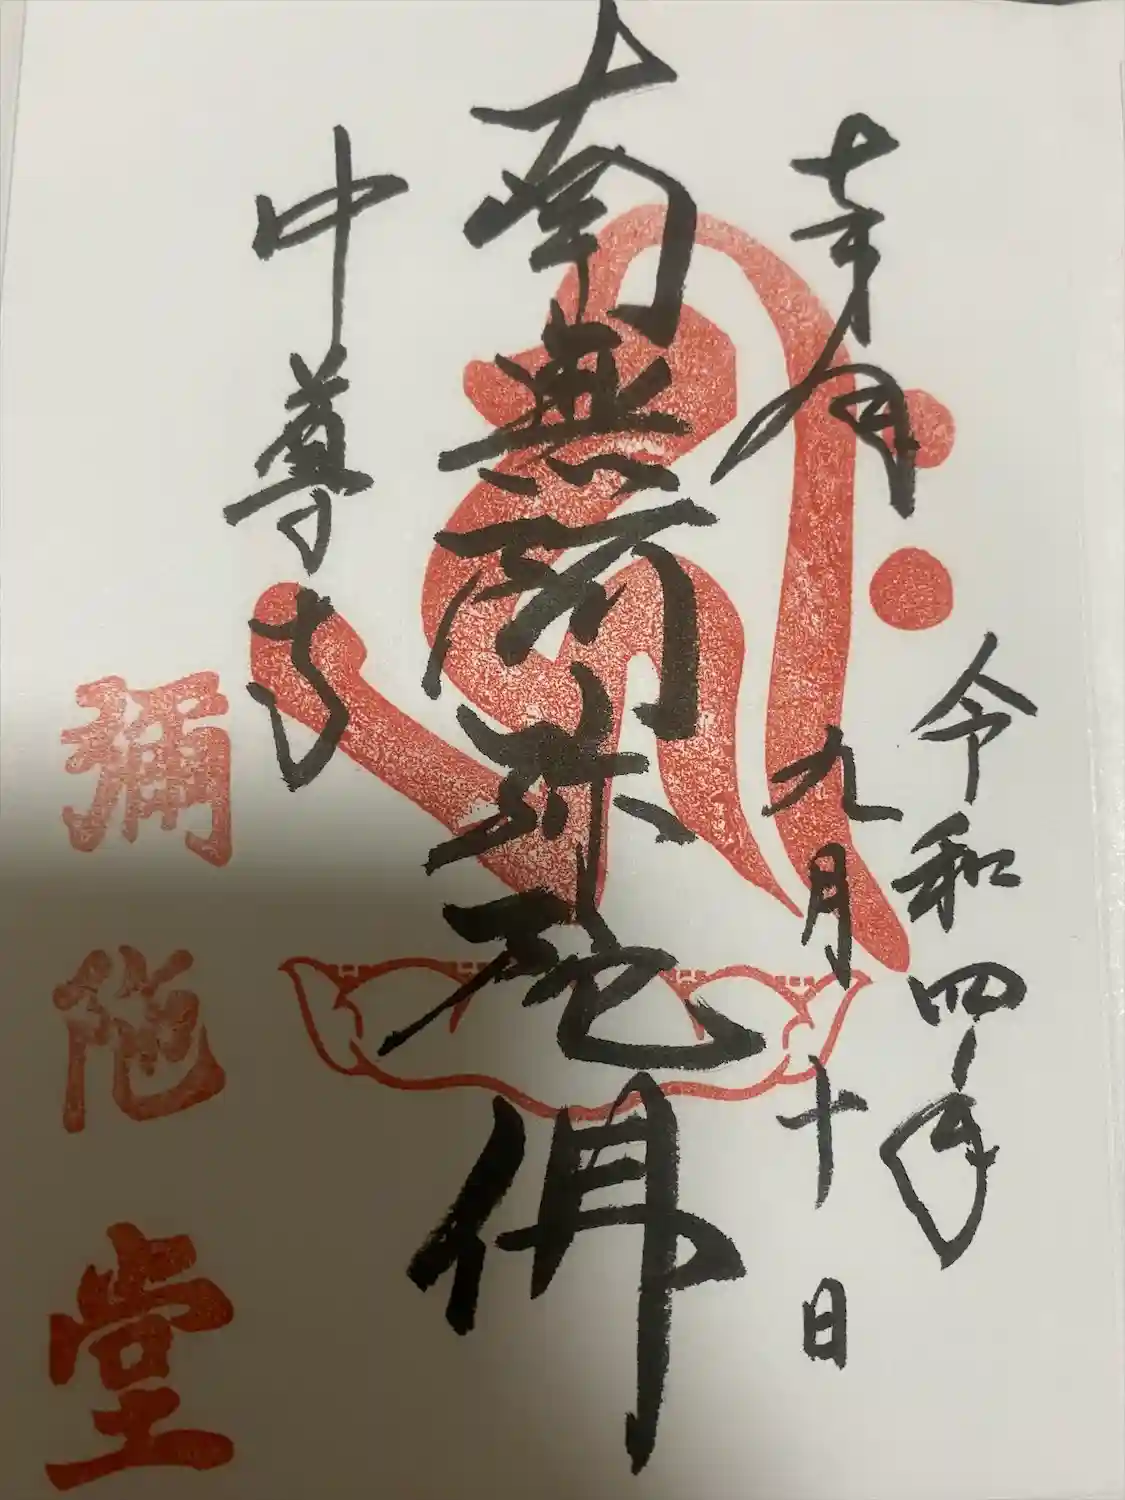 奉拝
令和四年
九月十日
南無阿弥陀佛
中尊寺
彌陀堂